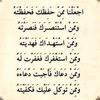 اجعلنا ممن حفظك فحفظته
وممن استنصرك فنصرته
وممن استهداك فهديته
وممن استغفرك فغفرت له
وممن دعاك فأجبت دعاءه
وممن توكل عليك فكفيته